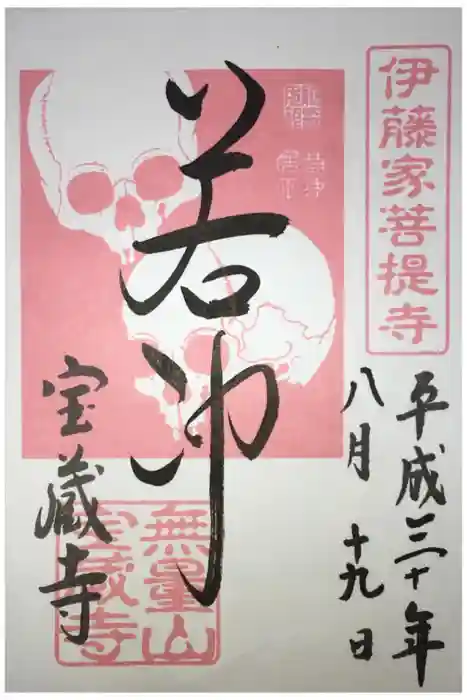 伊藤家菩提寺
平成三十年
八月十九日
若冲
宝蔵寺
無量山
宝蔵寺